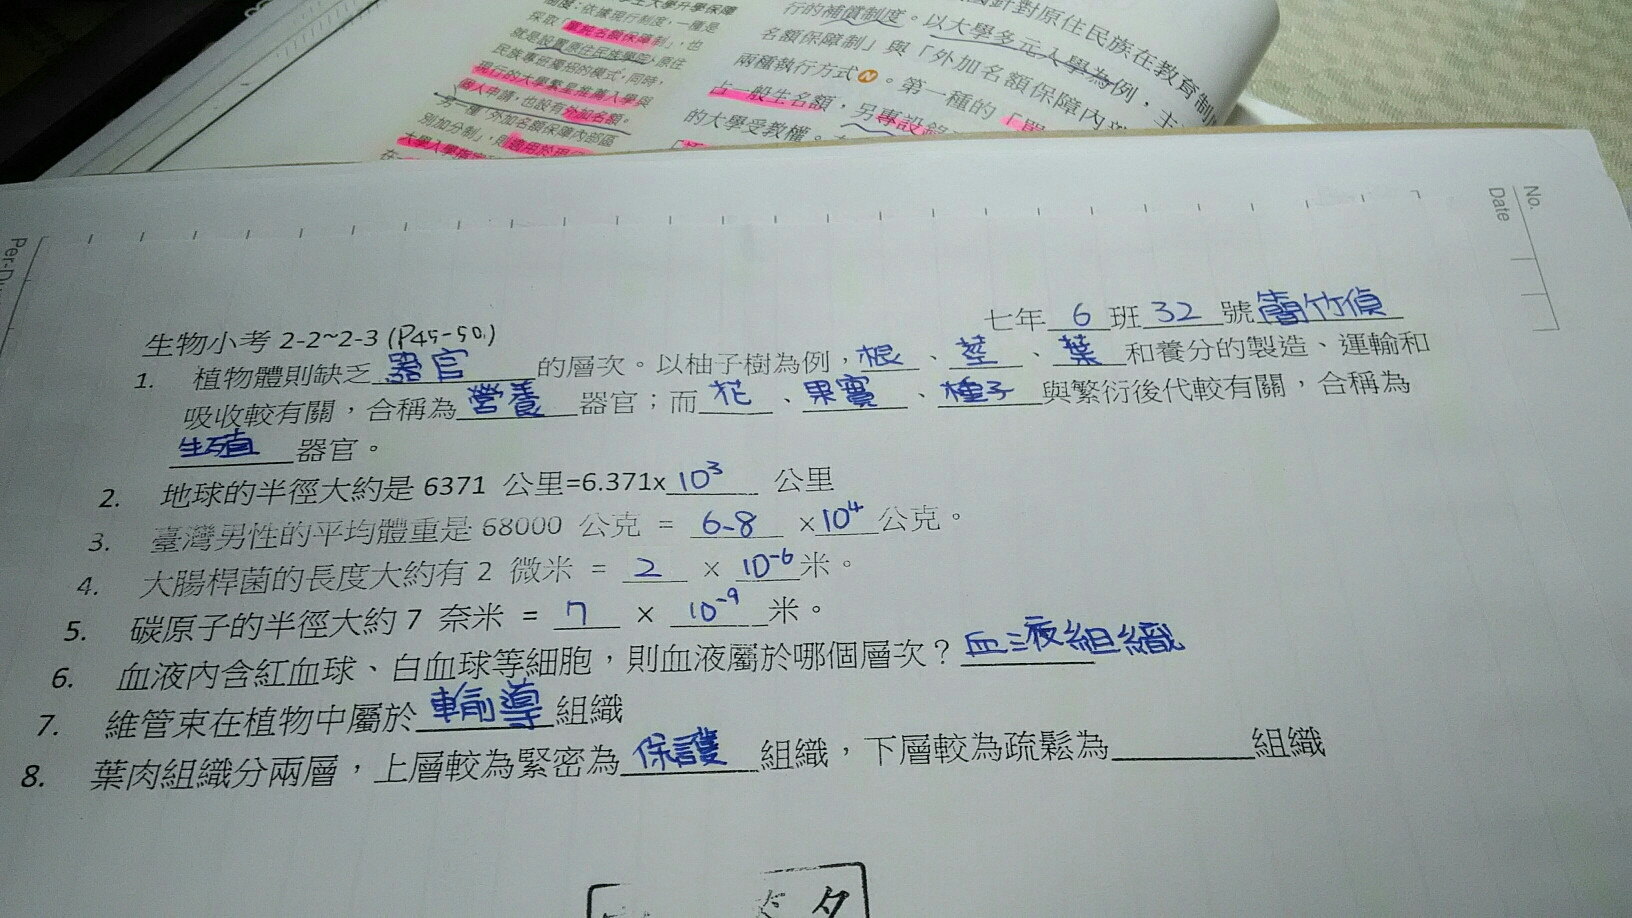 學生大學升學保障
制度:依據現行制度,一種是
採取「單純名額保障制」,也
就是設置原住民族學院、原住
民族專班獨招的模式;同時,
現行的大學繁星推薦入學與
個人申請,也設有外加名額。
另一種「外加名額保障內部區
別加分制」,則適用於
大學入學指定
針對原住民族在教育制
行的補償制度。以大學多元入學為例,主
名額保障制」與「外加名額保障內
兩種執行方式N。第一種的「單
占一般生名額,另專設
的大學受教權。
No.
Date
七年 6 班 32 號 簡竹偵
生物小考 2-2~2-3 (P45-50.)
1. 植物體則缺乏 器官 的層次。以柚子樹為例,根、莖、葉和養分的製造、運輸和
吸收較有關,合稱為 營養 器官;而 花、果實、種子 與繁衍後代較有關,合稱為
生殖 器官。
2. 地球的半徑大約是 6371 公里=6.371x 10³ 公里
3. 臺灣男性的平均體重是 68000 公克 = 6.8 ×10⁴公克。
4. 大腸桿菌的長度大約有 2 微米 = 2 × 10⁻⁶米。
5. 碳原子的半徑大約 7 奈米 = 7 × 10⁻⁹ 米。
6. 血液內含紅血球、白血球等細胞,則血液屬於哪個層次? 血液組織
7. 維管束在植物中屬於 輸導 組織
8. 葉肉組織分兩層,上層較為緊密為 保護 組織,下層較為疏鬆為________組織